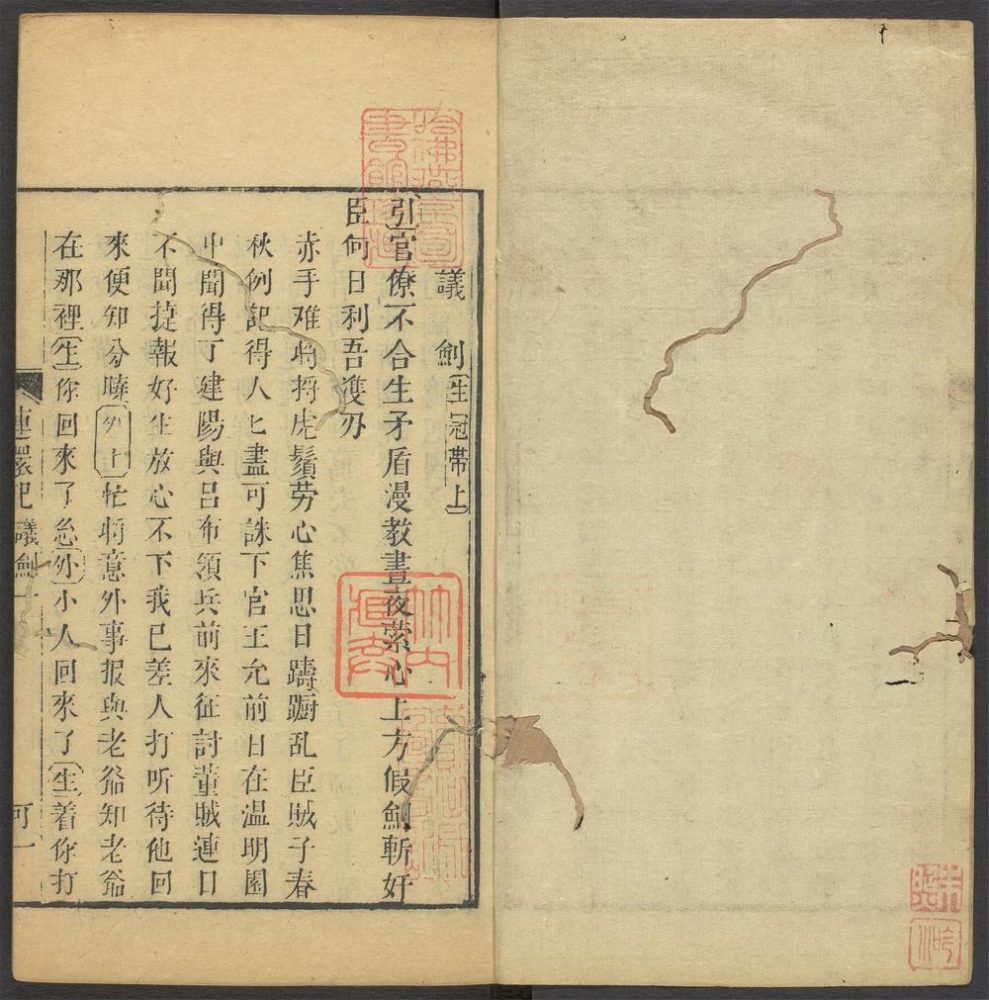 議劍生冠帶上
引官僚不合生矛盾漫教晝夜縈心上方假劍斬奸
臣何日利吾雙刃
赤手难将捋虎鬚劳心焦思日躊蹰乱臣贼子春
秋例記得人匕盡可誅下官王允前日在温明園
中聞得丁建陽與呂布領兵前來征討董贼連日
不聞捷報好生放心不下我已差人打听待他回
來便知分曉外上忙将意外事报與老爺知老爺
在那裡生你回來了麽外小人回來了生着你打
連環記 議劍 一 可一
哈佛燕京圖書館